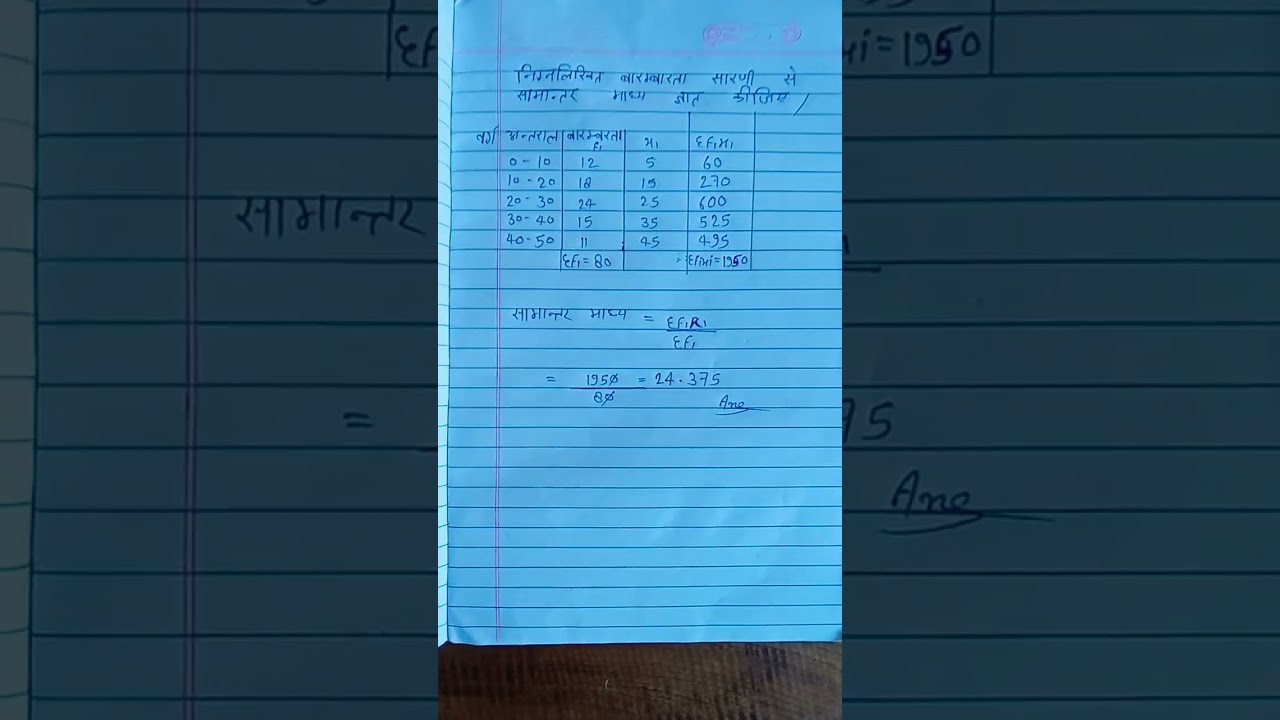 निम्नलिखित बारम्बारता सारणी से
सामान्तर माध्य ज्ञात कीजिए /
वर्ग अन्तराल बारम्बरता f₁ x₁ Σf₁x₁
0-10 12 5 60
10-20 18 15 270
20-30 24 25 600
30-40 15 35 525
40-50 11 45 495
Σf₁=80 Σfixi=1950
सामान्तर माध्य = Σf₁x₁
Σf₁
= 1950 = 24.375
80
Ans